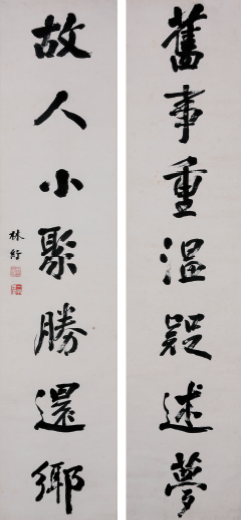 舊事重溫疑述夢
故人小聚勝還鄉
林紓